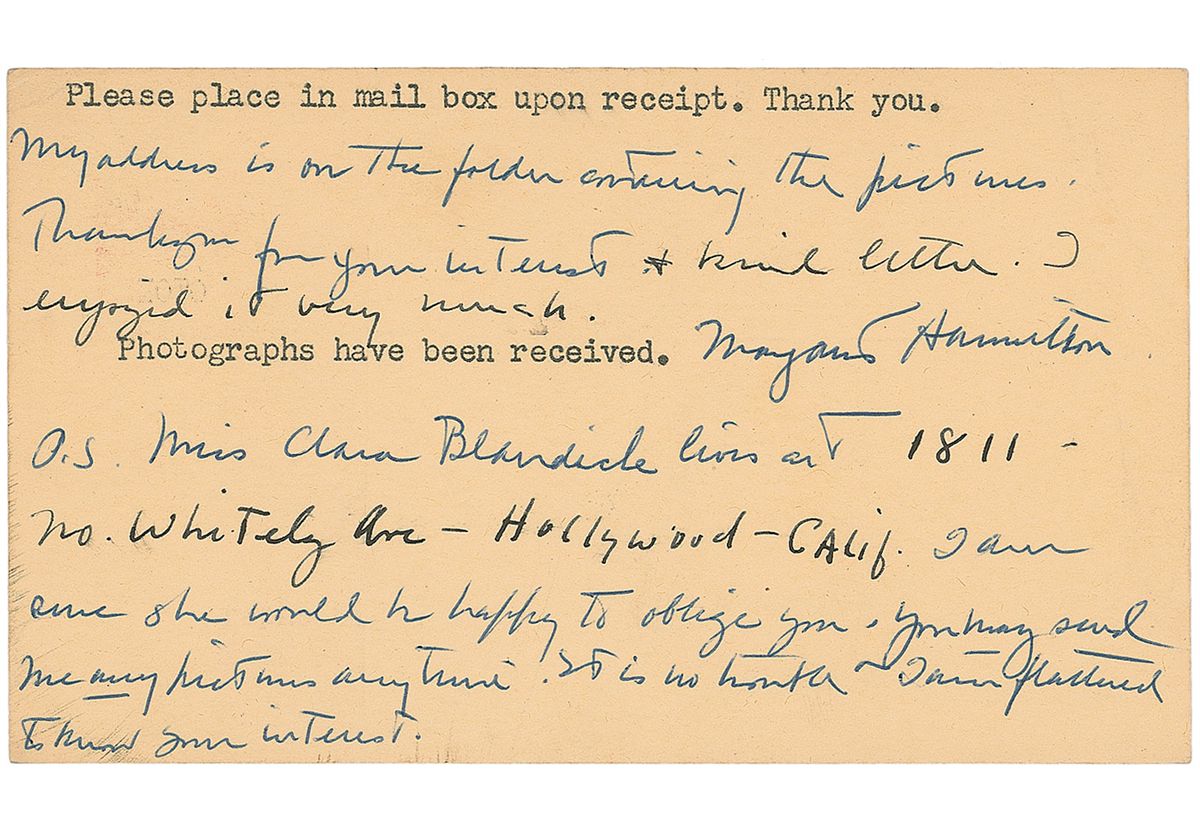 Please place in mail box upon receipt. Thank you.
My address is on the folder containing the pictures.
Thank you for your interest & kind letter. I
enjoyed it very much.
Photographs have been received. Margaret Hamilton
P.S. Miss Clara Blandick lives at 1811 -
No. Whitely Ave - Hollywood - Calif. I am
sure she would be happy to oblige you. You may send
me any pictures any time. It is no trouble - I am flattered
to know your interest.